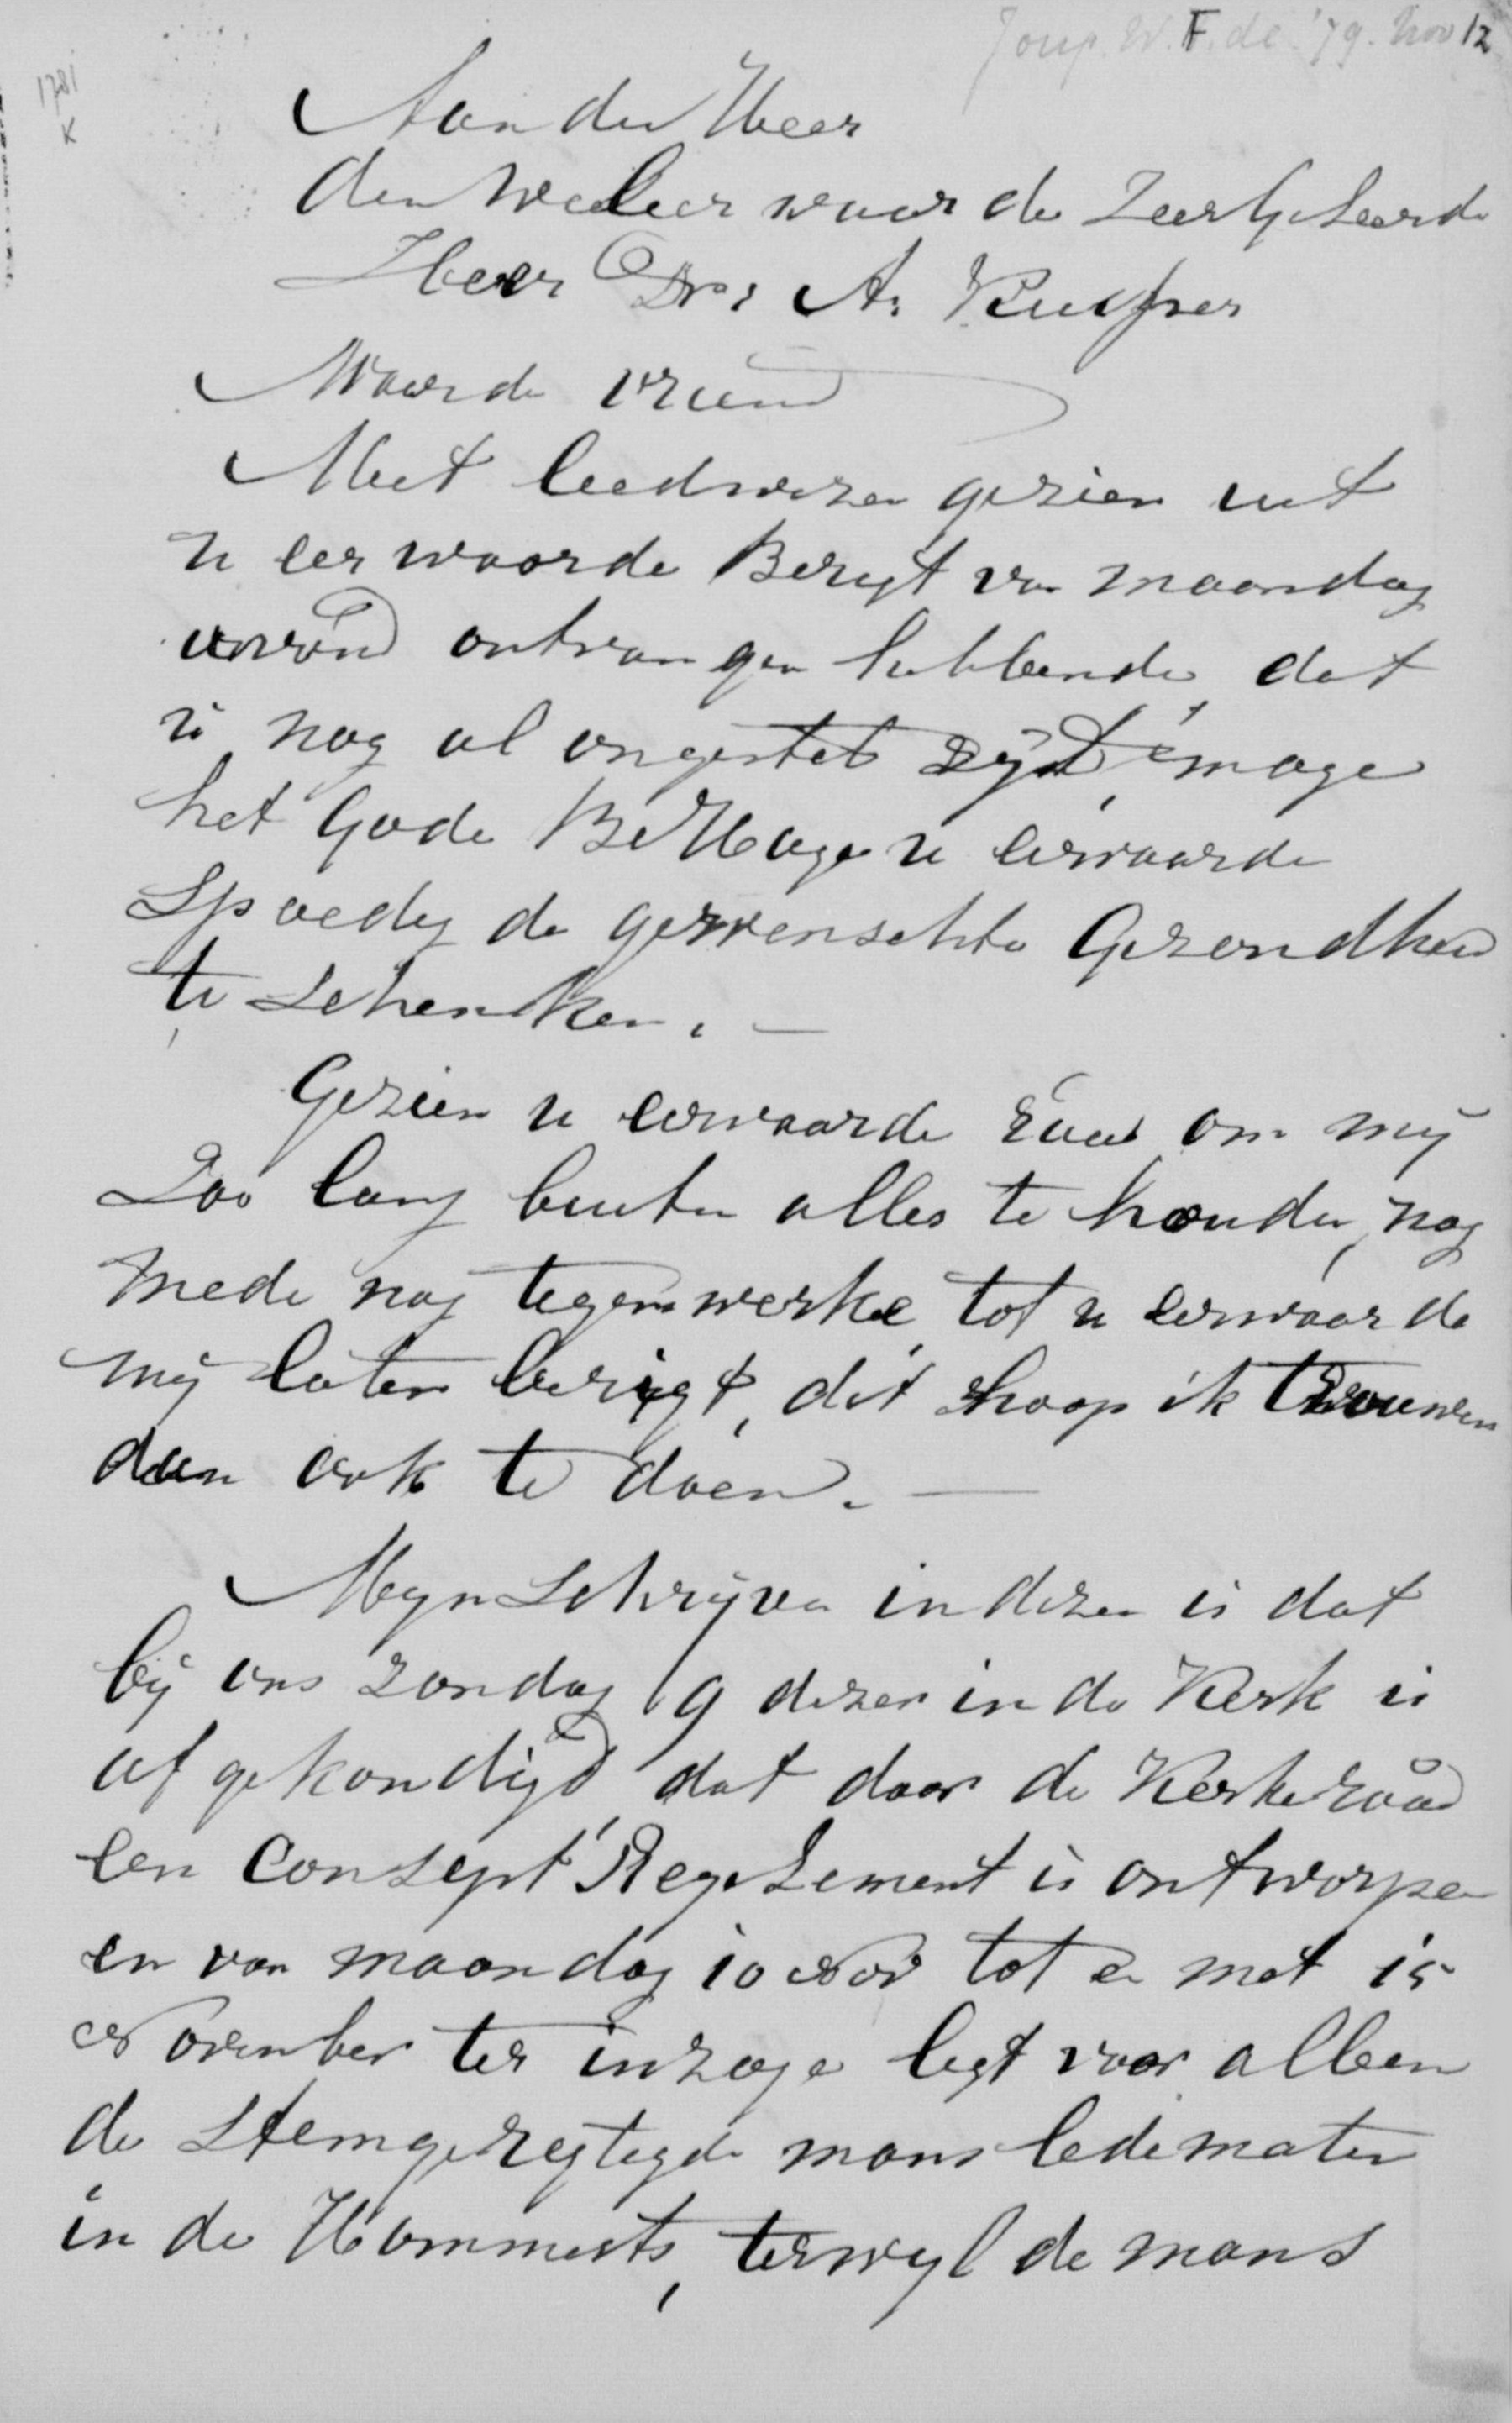 Joup. W. F. de '79. Nov 12
1781
K
Aan den Heer
den Weleer waar de Zeer Geleerde
Heer Dr: A. Kuijper
Waarde vriend
Met leedwezen gezien uit
u eer waarde Berigt van maandag
avond ontvangen hebbende, dat
u nog al ongestelt zijt, moge
het Gode Be Hage u eerwaarde
Spoedig de gewenschte Gezondheid
te Schenken. —
Gezien u eerwaarde raad om mij
Zoo lang buiten alles te houden, nog
mede nog tegenwerke tot u eerwaarde
mij laten berigt, dit hoop ik trouwen
dan ook te doen. —
Mijn Schrijven in dezen is dat
bij ons zondag 9 dezer in de Kerk is
afgekondigd, dat door de Kerkeraad
een Consept Regelement is ontworpen
en van maandag 10 Nov tot en met 15
November ter inzage legt voor alleen
de Stemgeregtegde mans ledematen
in de Kommerts, terwyl de mans